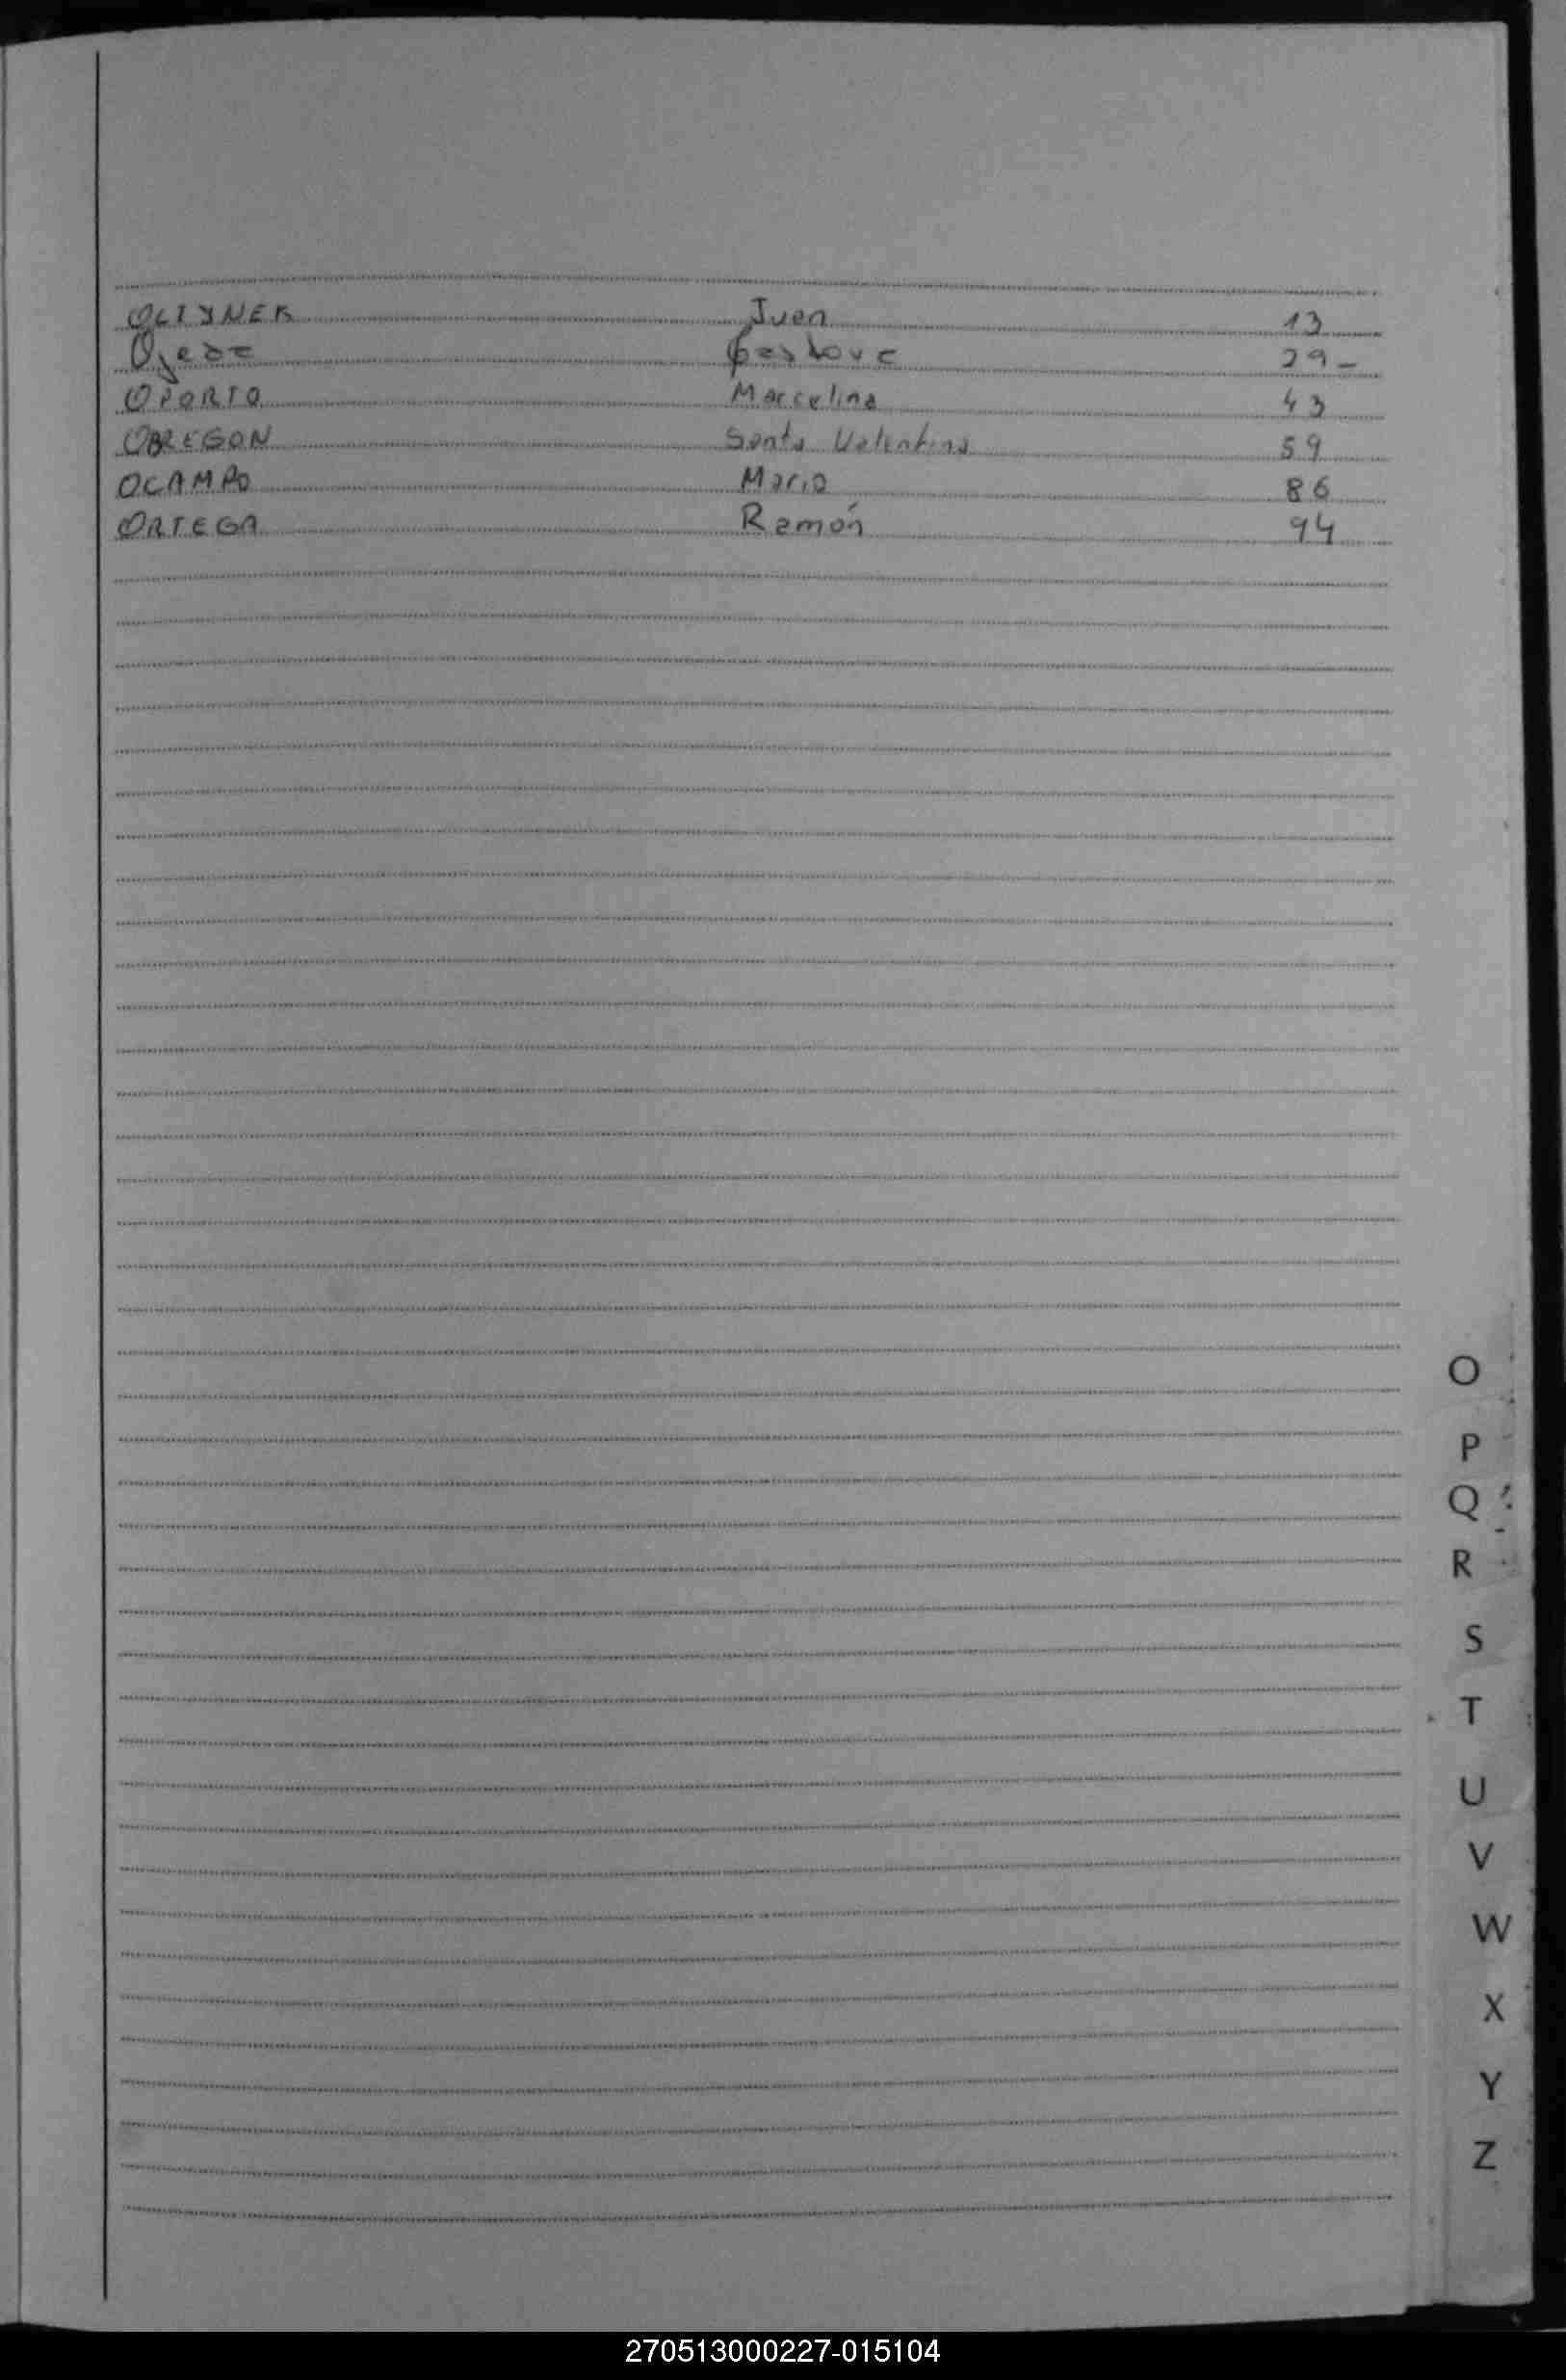 OLIYNEK Juan 13
Ojeda 29 -
OPORTO Marcelina 43
OBREGON Santa Valentina 59
OCAMPO Mario 86
ORTEGA Ramón 94
O
P
Q
R
S
T
U
V
W
X
Y
Z
270513000227-015104